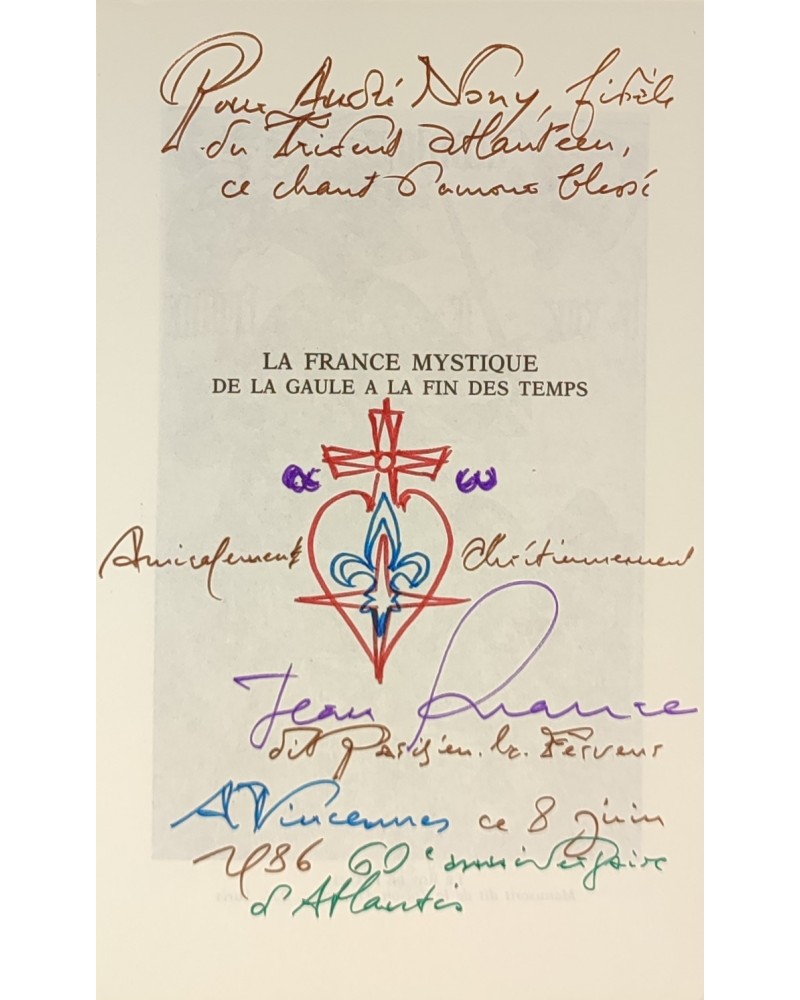 Pour André Nony, fidèle
du Trident atlantéen,
ce chant d'amour blessé
LA FRANCE MYSTIQUE
DE LA GAULE A LA FIN DES TEMPS
α ω
Amicalement Chrétiennement
Jean
dit Parisien. la. Ferveur
A Vincennes ce 8 juin
1986 60e anniversaire
d'Atlantis